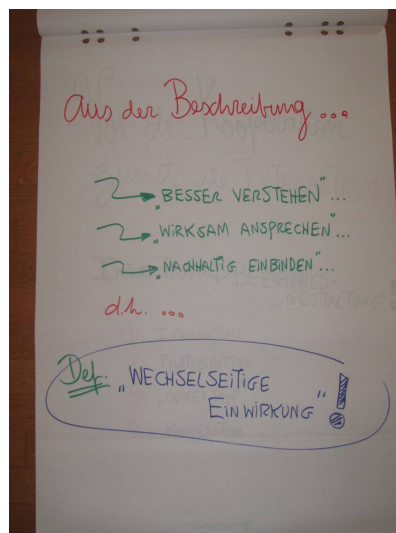 Aus der Beschreibung ...
"BESSER VERSTEHEN" ...
"WIRKSAM ANSPRECHEN" ...
"NACHHALTIG EINBINDEN" ...
d.h. ...
Def. „WECHSELSEITIGE
EINWIRKUNG" !